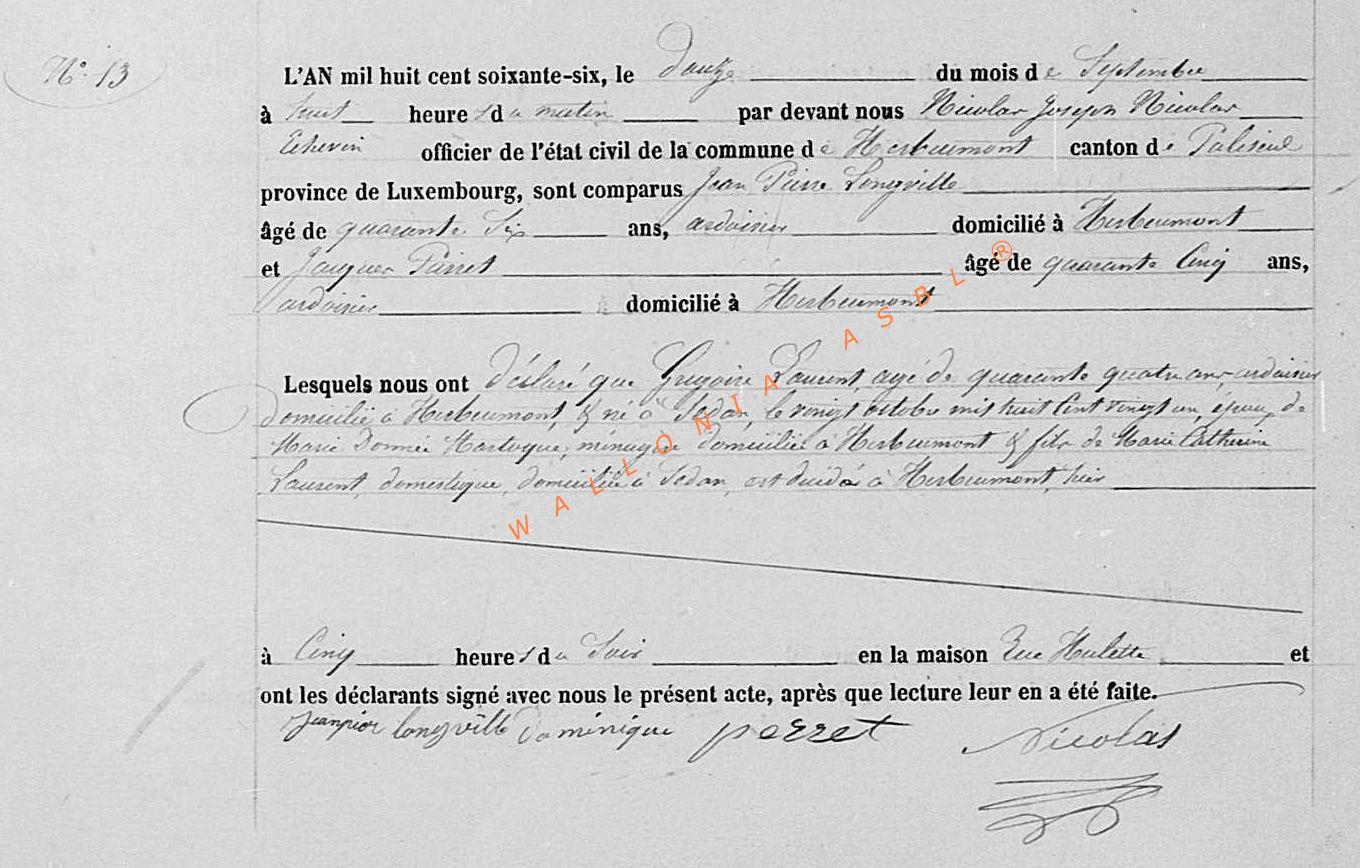 N° 13
L'AN mil huit cent soixante-six, le douze du mois de Septembre
à huit heures du matin par devant nous Nicolas Joseph Nicolas
Echevin officier de l'état civil de la commune de Herbeumont canton de Paliseul
province de Luxembourg, sont comparus Jean Pierre Longville
âgé de quarante Six ans, ardoisier domicilié à Herbeumont
et Jacques Pierret âgé de quarante Cinq ans,
ardoisier domicilié à Herbeumont
Lesquels nous ont déclaré que Grégoire Laurent, agé de quarante quatre ans, ardoisier
domicilié à Herbeumont, & né à Sedan, le vingt octobre mil huit Cent vingt un, époux de
Marie Donnée ménagère domiciliée à Herbeumont & fils de Marie Catherine
Laurent, domestique, domiciliée à Sedan, est décédé à Herbeumont, hier
à Cinq heures du Soir en la maison Rue Hulette et
ont les déclarants signé avec nous le présent acte, après que lecture leur en a été faite.
jeanpier longville dominique perret Nicolas
WALLONIA ASBL ®